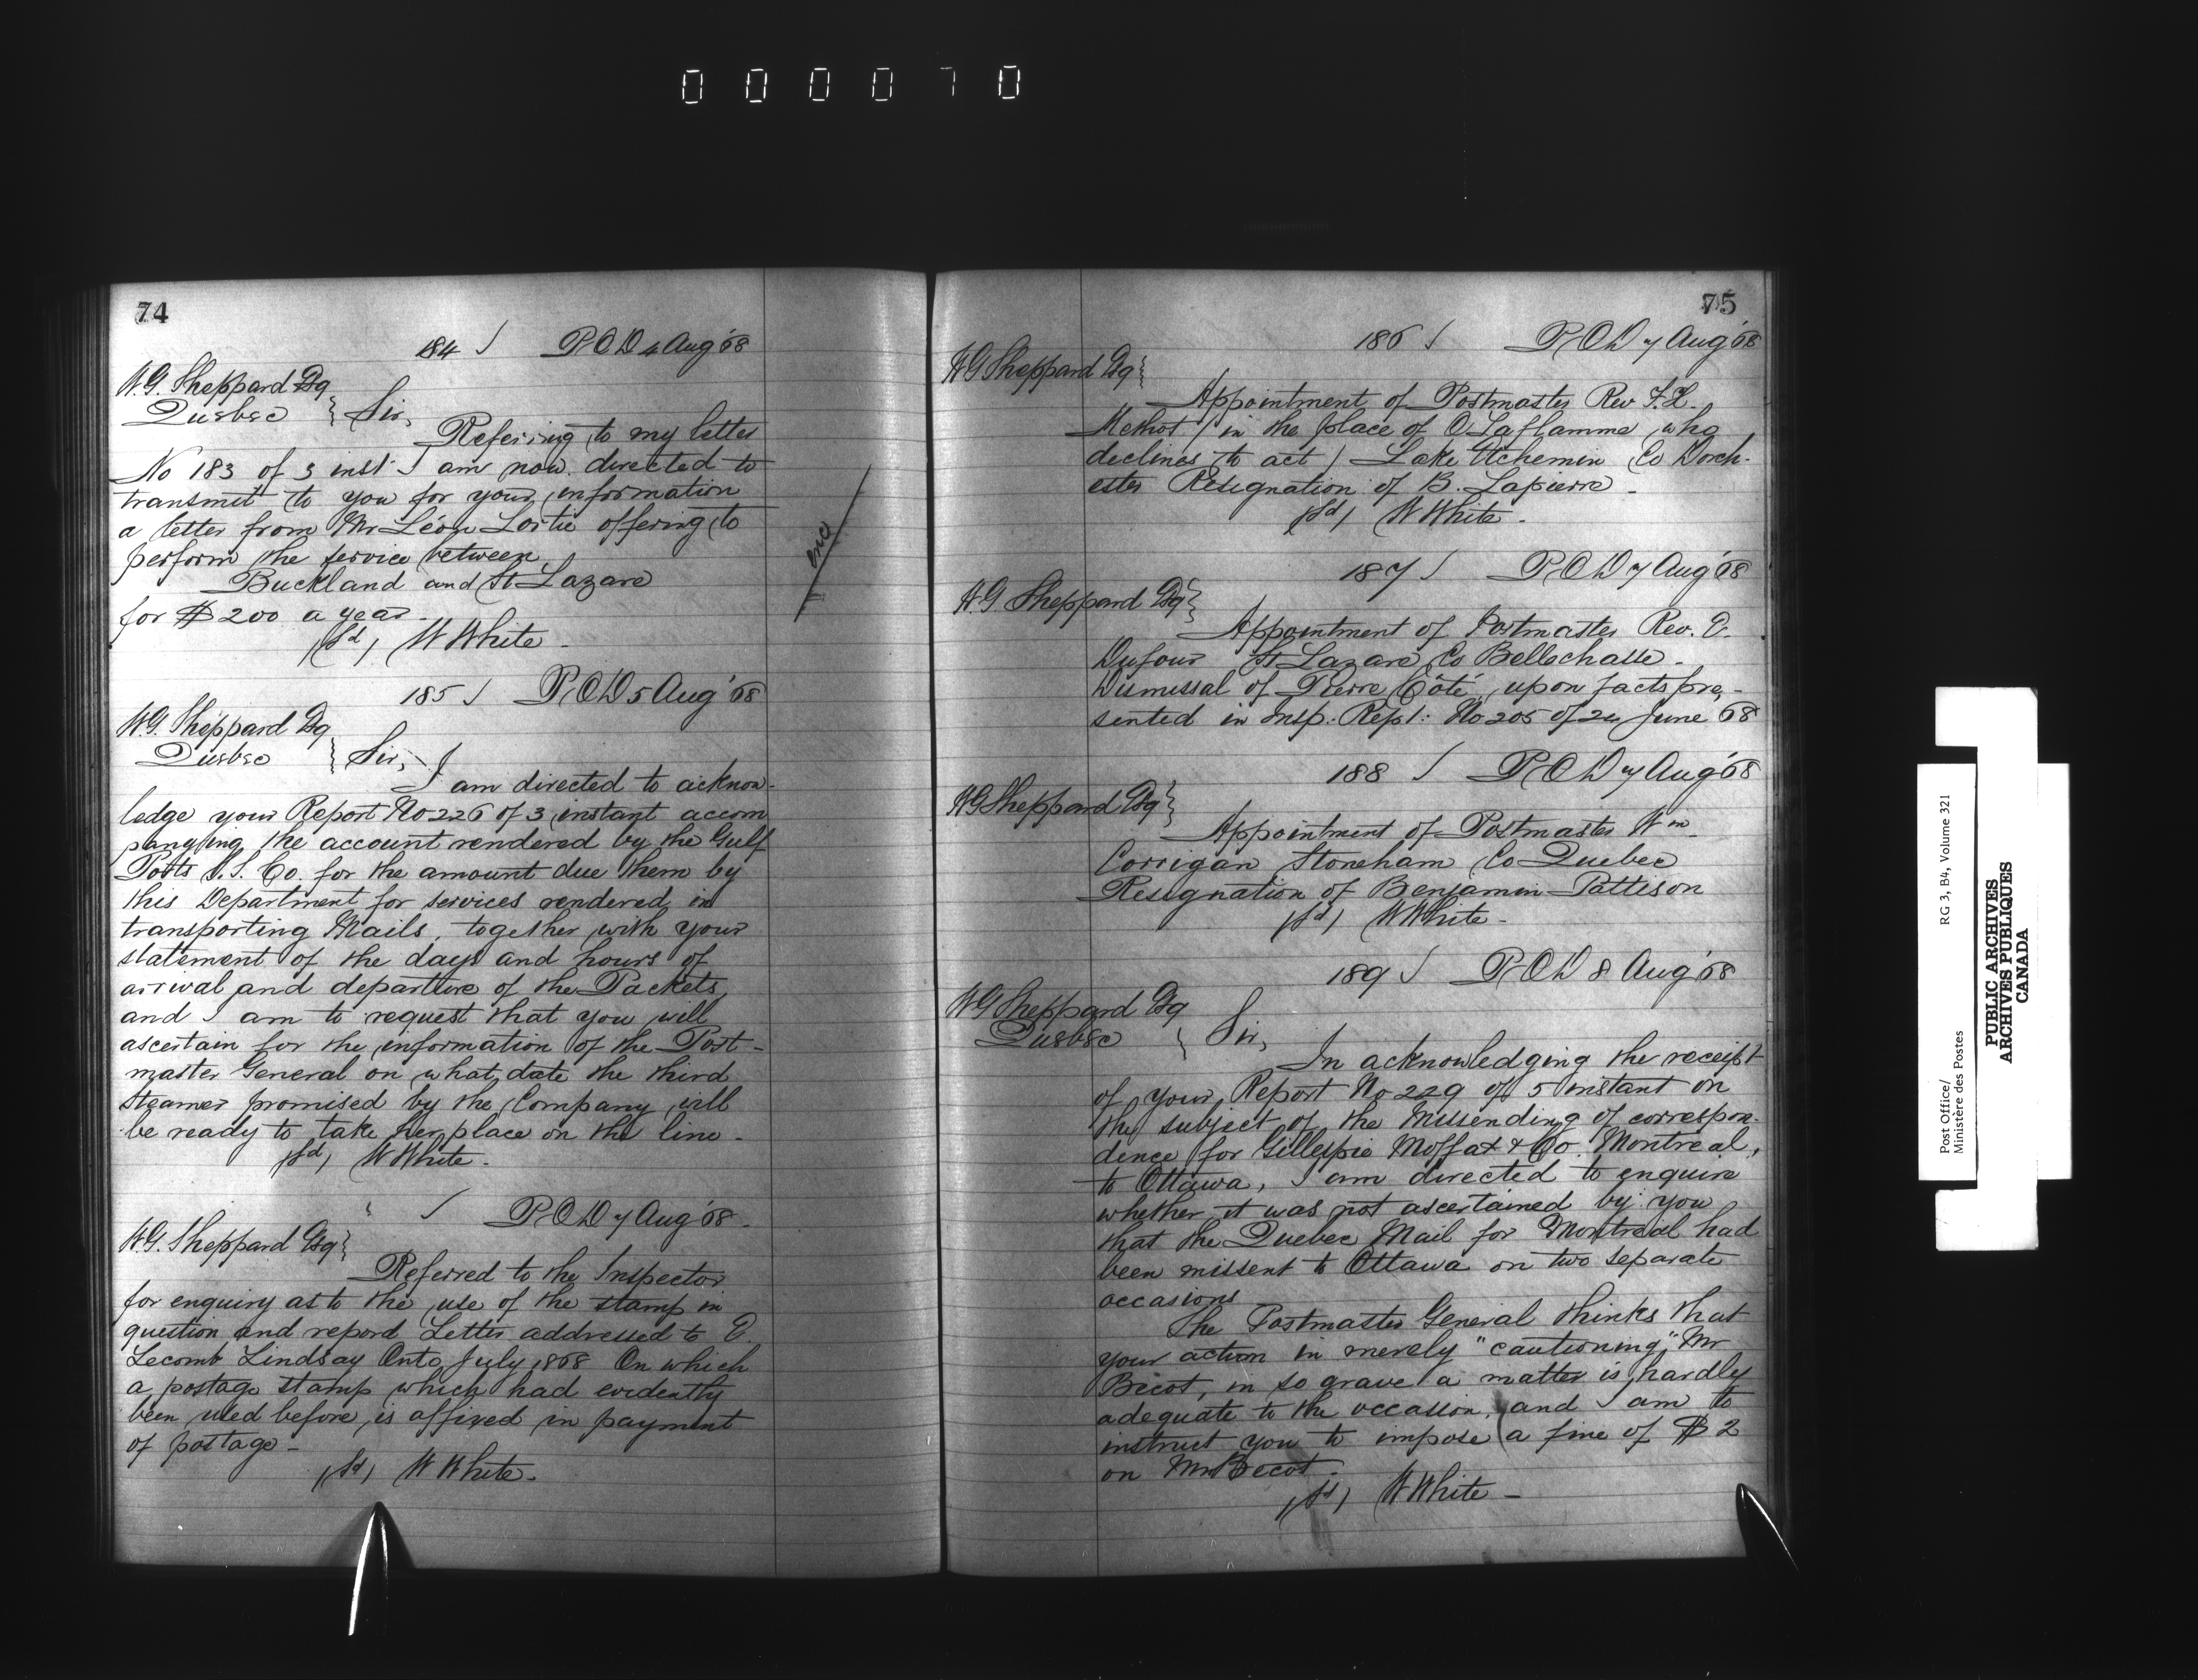 000070
74
184 / P.O.D 4 Aug '68
W.G. Sheppard Esq
Quebec } Sir,
Referring to my letter
No 183 of 3 inst: I am now directed to
transmit to you for your information
a letter from Mr Léon Lortie offering to
perform the service between
Buckland and St Lazare
for $200 a year.
(Sd) W White.
enc
185 / P.O.D 5 Aug '68
W.G. Sheppard Esq
Quebec } Sir,
I am directed to acknow-
ledge your Report No 226 of 3 instant accom
panying the account rendered by the Gulf
Ports S.S. Co. for the amount due them by
this Department for services rendered in
transporting Mails, together with your
statement of the days and hours of
arrival and departure of the Packets,
and I am to request that you will
ascertain for the information of the Post-
master General on what date the third
steamer promised by the Company will
be ready to take her place on the line.
(Sd) W White.
/ P.O.D 7 Aug '68.
W.G. Sheppard Esq }
Referred to the Inspector
for enquiry as to the use of the stamp in
question and report Letter addressed to E.
Lecomb Lindsay Onto July 1868 On which
a postage stamp which had evidently
been used before is affixed in payment
of postage -
(Sd) W White.
75
186 / P.O.D 7 Aug '68
W G Sheppard Esq }
Appointment of Postmaster Rev F.X.
Methot (in the place of O Laflamme who
declines to act) Lake Etchemin Co Dorch-
ester Resignation of B. Lapierre -
(Sd) W White.
187 / P.O.D 7 Aug '68
W.G. Sheppard Esq }
Appointment of Postmaster Rev. E.
Dufour St Lazare Co Bellechasse -
Dismissal of Pierre Côté, upon facts pre, -
sented in Insp: Rept: No 205 of 24 June 68
188 / P.O.D 7 Aug '68
W G Sheppard Esq }
Appointment of Postmaster Wm
Corrigan Stoneham Co Quebec
Resignation of Benjamin Pattison
(Sd) W White -
189 / P.O.D 8 Aug '68
W G Sheppard Esq
Quebec } Sir,
In acknowledging the receipt
of your Report No 229 of 5 instant on
the subject of the missending of correspon-
dence for Gillespie Moffat & Co. Montreal,
to Ottawa, I am directed to enquire
whether it was not ascertained by you
that the Quebec Mail for Montreal had
been missent to Ottawa on two separate
occasions
The Postmaster General thinks that
your action in merely "cautioning," Mr
Bécot, in so grave a matter is hardly
adequate to the occasion, and I am to
instruct you to impose a fine of $2
on Mr Bécot.
(Sd) W White -
Post Office/
Ministère des Postes
RG 3, B4, Volume 321
PUBLIC ARCHIVES
ARCHIVES PUBLIQUES
CANADA